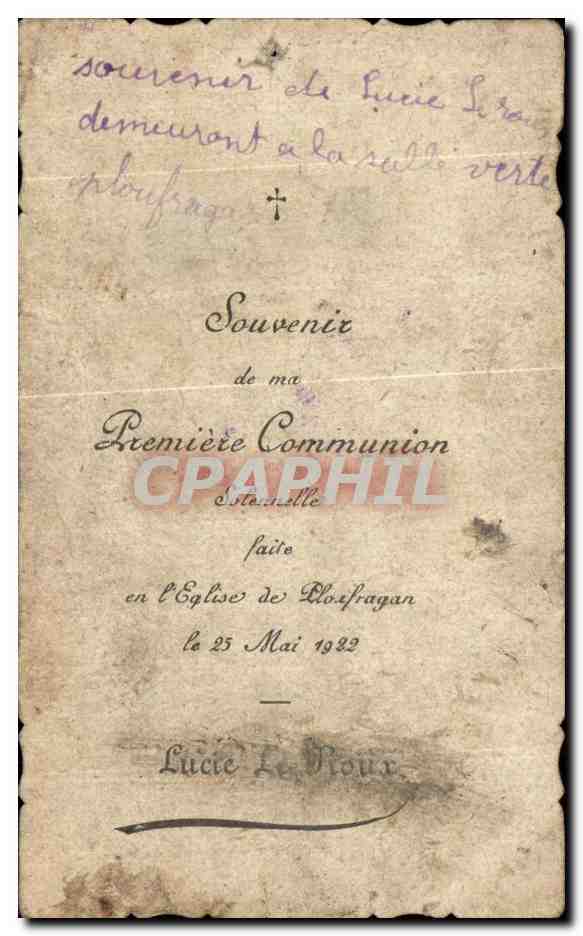 souvenir de Lucie Leroux
demeurant a la salle verte
ploufragan
Souvenir
de ma
Première Communion
CPAPHIL
Solennelle
faite
en l'Eglise de Ploufragan
le 25 Mai 1922
Lucie Le Rioux